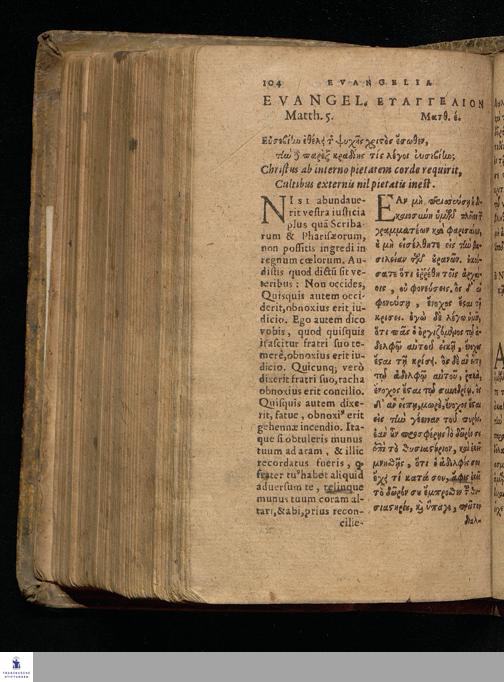 104 EVANGELIA
EVANGEL. ΕΥΑΓΓΕΛΙΟΝ
Matth. 5. Ματθ. έ.
Christus ab interno pietatem corde requirit,
Cultibus externis nil pietatis inest.
NISI abundaue-
rit vestra iusticia
plus quā Scriba-
rum & Pharisæorum,
non possitis ingredi in
regnum cœlorum. Au-
distis quod dictū sit ve-
teribus: Non occides,
Quisquis autem occi-
derit, obnoxius erit iu-
dicio. Ego autem dico
vobis, quod quisquis
irascitur fratri suo te-
merè, obnoxius erit iu-
dicio. Quicunq; verò
dixerit fratri suo, racha
obnoxius erit concilio.
Quisquis autem dixe-
rit, fatue, obnoxiꝰ erit
gehennæ incendio. Ita-
que si obtuleris munus
tuum ad aram, & illic
recordatus fueris, ꝙ
frater tuꝰ habet aliquid
aduersum te, relinque
munus tuum coram al-
tari, & abi, prius recon-
cilie-
ΕΑν μὴ
γραμματέων καὶ φαρισαίων,
ὐ μὴ εἰσέλθητε εἰς τὴν βα-
σιλείαν τῶν ὐρανῶν. ἠκύ-
σατε ὅτι ἐῤῥέθη τοῖς ἀρχαί-
οις, οὐ φονεύσεις. ὃς δ' ἂ
φονεύσῃ, ἔνοχος ἔσαι τῇ
κρίσει. ἐγὼ δὲ λέγω ὑμῖν,
ὅτι πᾶς ὁ ὀργιζόμενος τῷ ἀ-
δελφῷ αὐτοῦ εἰκῆ, ἔνοχος
ἔσαι τῇ κρίσει. ὃς δὲ ἂν εἴπῃ
τῷ ἀδελφῷ αὐτοῦ, ῥακὰ,
ἔνοχος ἔσαι τῷ συνεδρίῳ. ὃς
δ' ἂν εἴπῃ, μωρὲ, ἔνοχος ἔσαι
εἰς τὴν γέενναν τοῦ πυρός.
ἐὰν ὖν προσφέρῃς τὸ δῶρόν σου
ἐπὶ τὸ θυσιαστήριον, καὶ ἐκεῖ
μνησθῇς, ὅτι ὁ ἀδελφός σου
ἔχει τὶ κατά σου, ἄφες ἐκεῖ
τὸ δῶρόν σου ἔμπροσθεν τοῦ θυ-
σιαστηρίου, καὶ ὕπαγε, πρῶτον
διαλ-
FRANCKESCHE
STIFTUNGEN